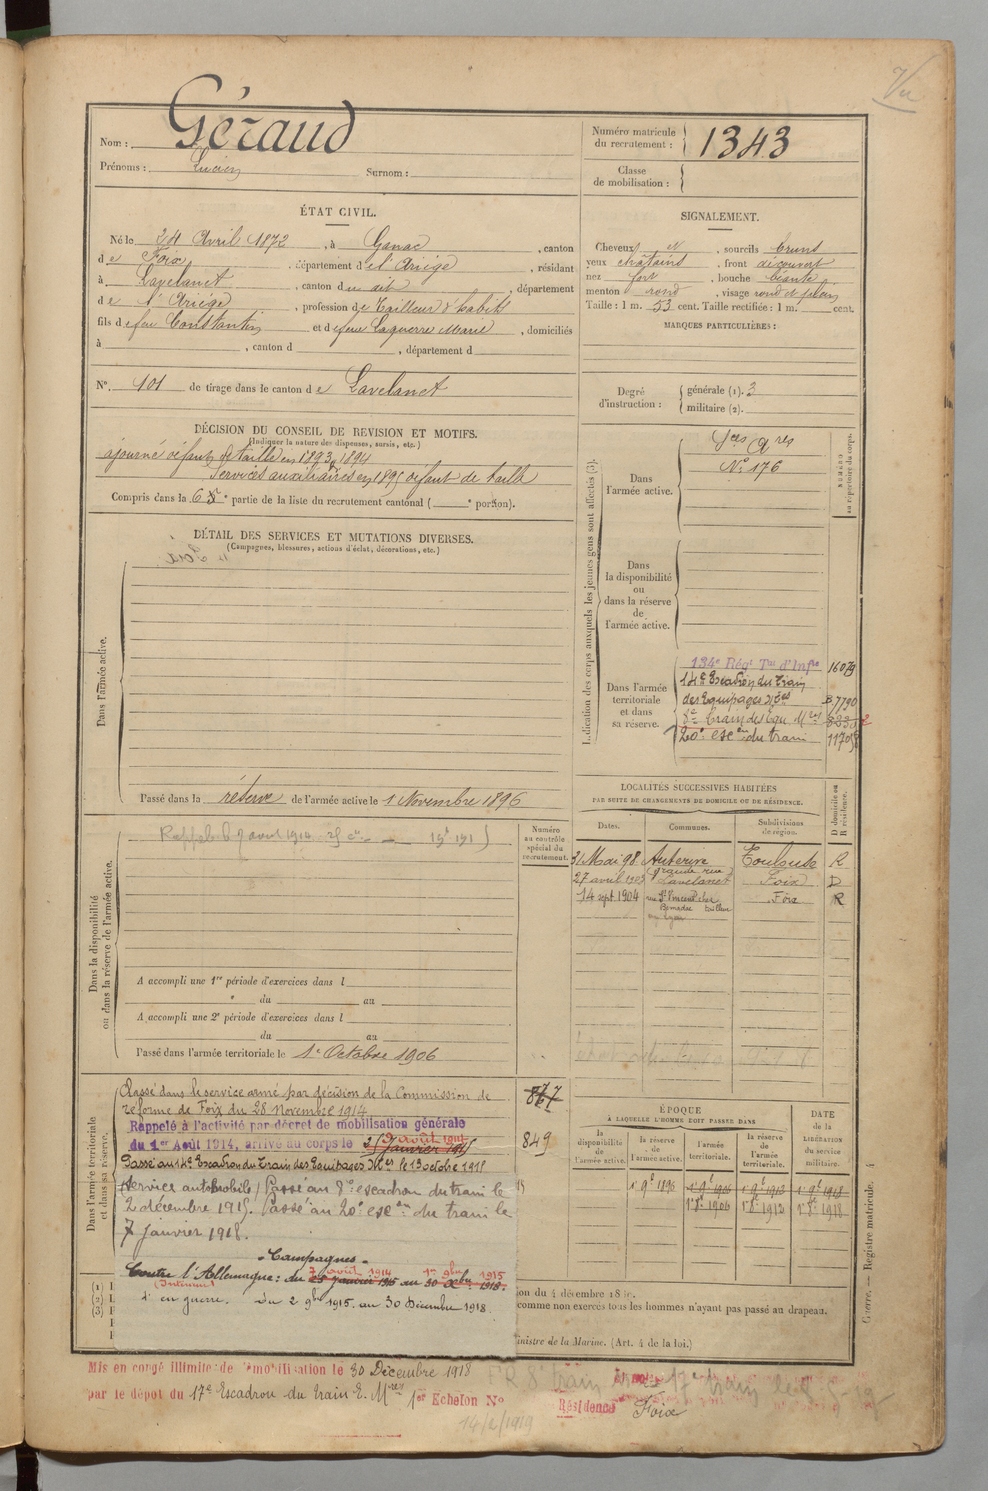 Vu
Nom : Géraud
Prénoms : Lucien Surnom :
Numéro matricule du recrutement : 1343
Classe de mobilisation :
ÉTAT CIVIL.
Né le 24 Avril 1872, à Ganac, canton
de Foix, département de l'Ariége, résidant
à Lavelanet, canton du dit, département
de l'Ariége, profession de Tailleur d'habits
fils de feu Constantin et de feue Laguerre Marie, domiciliés
à , canton d , département d
N°. 101 de tirage dans le canton de Lavelanet
SIGNALEMENT.
Cheveux N, sourcils bruns
yeux chatains, front découvert
nez fort, bouche béante
menton rond, visage rond et plein
Taille : 1 m. 53 cent. Taille rectifiée : 1 m. cent.
MARQUES PARTICULIÈRES :
Degré d'instruction : générale (1). 3
militaire (2).
DÉCISION DU CONSEIL DE REVISION ET MOTIFS.
(Indiquer la nature des dispenses, sursis, etc.)
ajourné défaut de taille en 1893, 1894
Services auxiliaires en 1895 défaut de taille
Compris dans la 6e partie de la liste du recrutement cantonal ( e portion).
DÉTAIL DES SERVICES ET MUTATIONS DIVERSES.
(Campagnes, blessures, actions d'éclat, décorations, etc.)
Dans l'armée active.
Passé dans la réserve de l'armée active le 1 Novembre 1896
Indication des corps auxquels les jeunes gens sont affectés (3).
NUMÉRO au répertoire du corps.
Dans l'armée active.
Sces Ares
N° 176
Dans la disponibilité ou dans la réserve de l'armée active.
Dans l'armée territoriale et dans sa réserve.
134e Régt Tal d'Infie 16079
14e Escadron du Train
des Equipages Mres 7790
8e Train des Equ. Mres
20e escon du train 11708
LOCALITÉS SUCCESSIVES HABITÉES
PAR SUITE DE CHANGEMENTS DE DOMICILE OU DE RÉSIDENCE.
Dates. Communes. Subdivisions de région. D domicile ou R résidence.
31 Mai 98 Auterive Toulouse R
27 avril 1903 (grande rue) Lavelanet Foix D
14 sept 1904 rue St Vincent chez Foix R
Dans la disponibilité ou dans la réserve de l'armée active.
Numéro au contrôle spécial du recrutement.
A accompli une 1re période d'exercices dans l
du au
A accompli une 2e période d'exercices dans l
du au
Passé dans l'armée territoriale le 1er Octobre 1906
Dans l'armée territoriale et dans sa réserve.
Classé dans le service armé par décision de la Commission de
réforme de Foix du 28 novembre 1914
Rappelé à l'activité par décret de mobilisation générale
du 1er Août 1914, arrivé au corps le 7 août 1914
Passé au 14e Escadron du Train des Equipages Mres le 13 octobre 1915
(service automobile) Passé au 8e escadron du train le
2 décembre 1915. Passé au 20e escon du train le
7 janvier 1918.
867
849
- Campagnes -
Contre l'Allemagne : du 7 août 1914 au 1er 9bre 1915
(Intérieur)
d° en guerre. du 2 9bre 1915 au 30 Décembre 1918.
ÉPOQUE
À LAQUELLE L'HOMME DOIT PASSER DANS
la disponibilité de l'armée active.
la réserve de l'armée active.
l'armée territoriale.
la réserve de l'armée territoriale.
DATE de la LIBÉRATION du service militaire.
1er 9bre 1896 1er 9bre 1906 1er 9bre 1912 1er 9bre 1918
1er 8bre 1906 1er 8bre 1912 1er 8bre 1918
(1)
(2)
(3)
comme non exercés tous les hommes n'ayant pas passé au drapeau.
ministre de la Marine. (Art. 4 de la loi.)
Guerre. — Registre matricule. 4
Mis en congé illimité de démobilisation le 30 Décembre 1918
par le dépôt du 17e Escadron du train E. Mres 1er Echelon N°
Résidence Foix